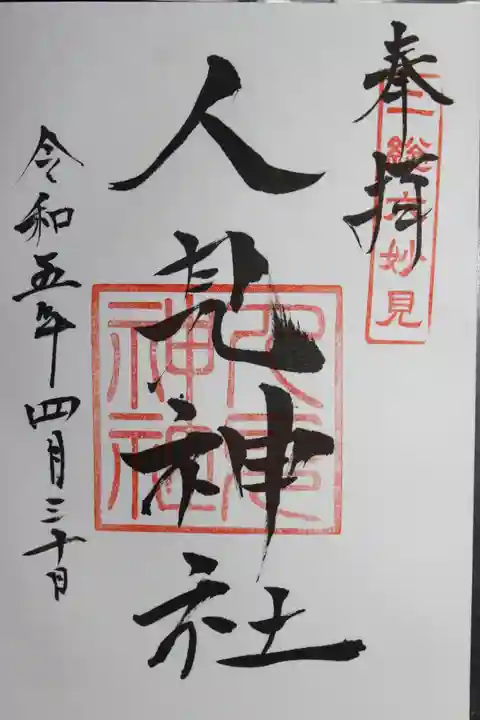 奉拝
二総六妙見
人見神社
人見神社
令和五年四月三十日